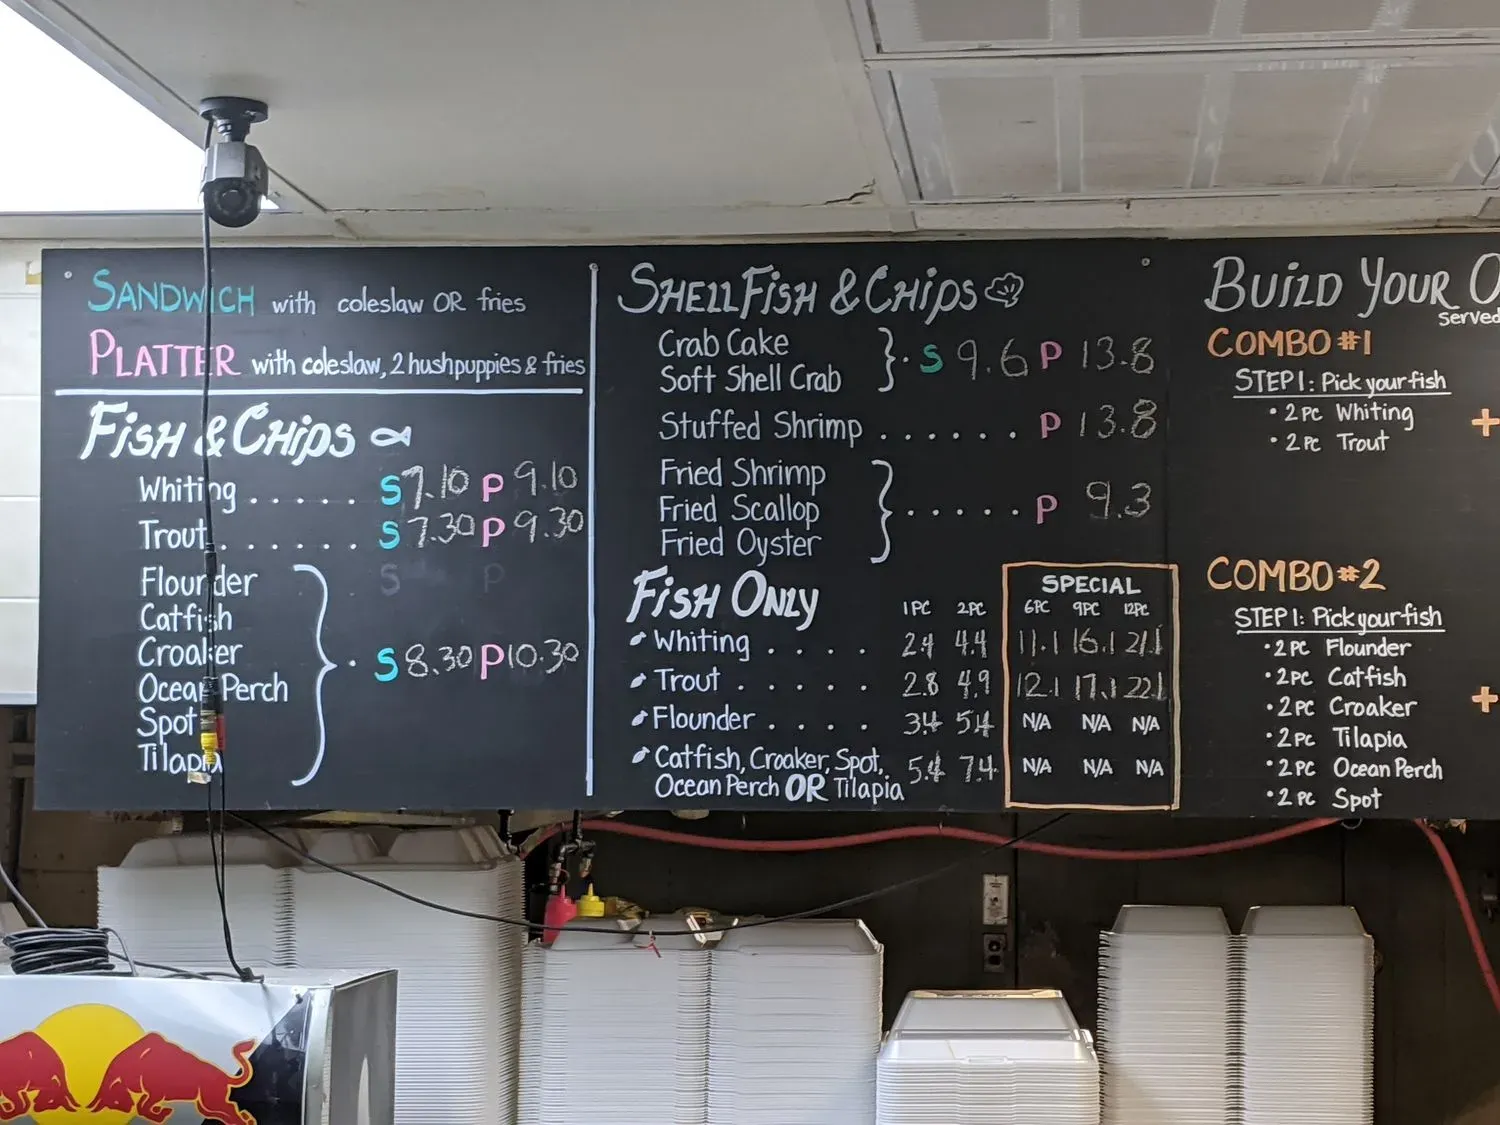 SANDWICH with coleslaw OR fries
PLATTER with coleslaw, 2 hushpuppies & fries
FISH & CHIPS
Whiting ..... S 7.10 P 9.10
Trout ...... S 7.30 P 9.30
Flounder S P
Catfish
Croaker
Ocean Perch
Spot
Tilapia
. S 8.30 P 10.30
SHELLFISH & CHIPS
Crab Cake
Soft Shell Crab
. S 9.6 P 13.8
Stuffed Shrimp ...... P 13.8
Fried Shrimp
Fried Scallop
Fried Oyster
...... P 9.3
FISH ONLY
1PC 2PC
SPECIAL
6PC 9PC 12PC
Whiting .... 2.4 4.4 11.1 16.1 21.1
Trout ..... 2.8 4.9 12.1 17.1 22.1
Flounder .... 3.4 5.4 N/A N/A N/A
Catfish, Croaker, Spot,
Ocean Perch OR Tilapia 5.4 7.4 N/A N/A N/A
BUILD YOUR
Served
COMBO #1
STEP 1: Pick your fish
• 2 PC Whiting
• 2 PC Trout
+
COMBO #2
STEP 1: Pick your fish
• 2 PC Flounder
• 2 PC Catfish
• 2 PC Croaker
• 2 PC Tilapia
• 2 PC Ocean Perch
• 2 PC Spot
+